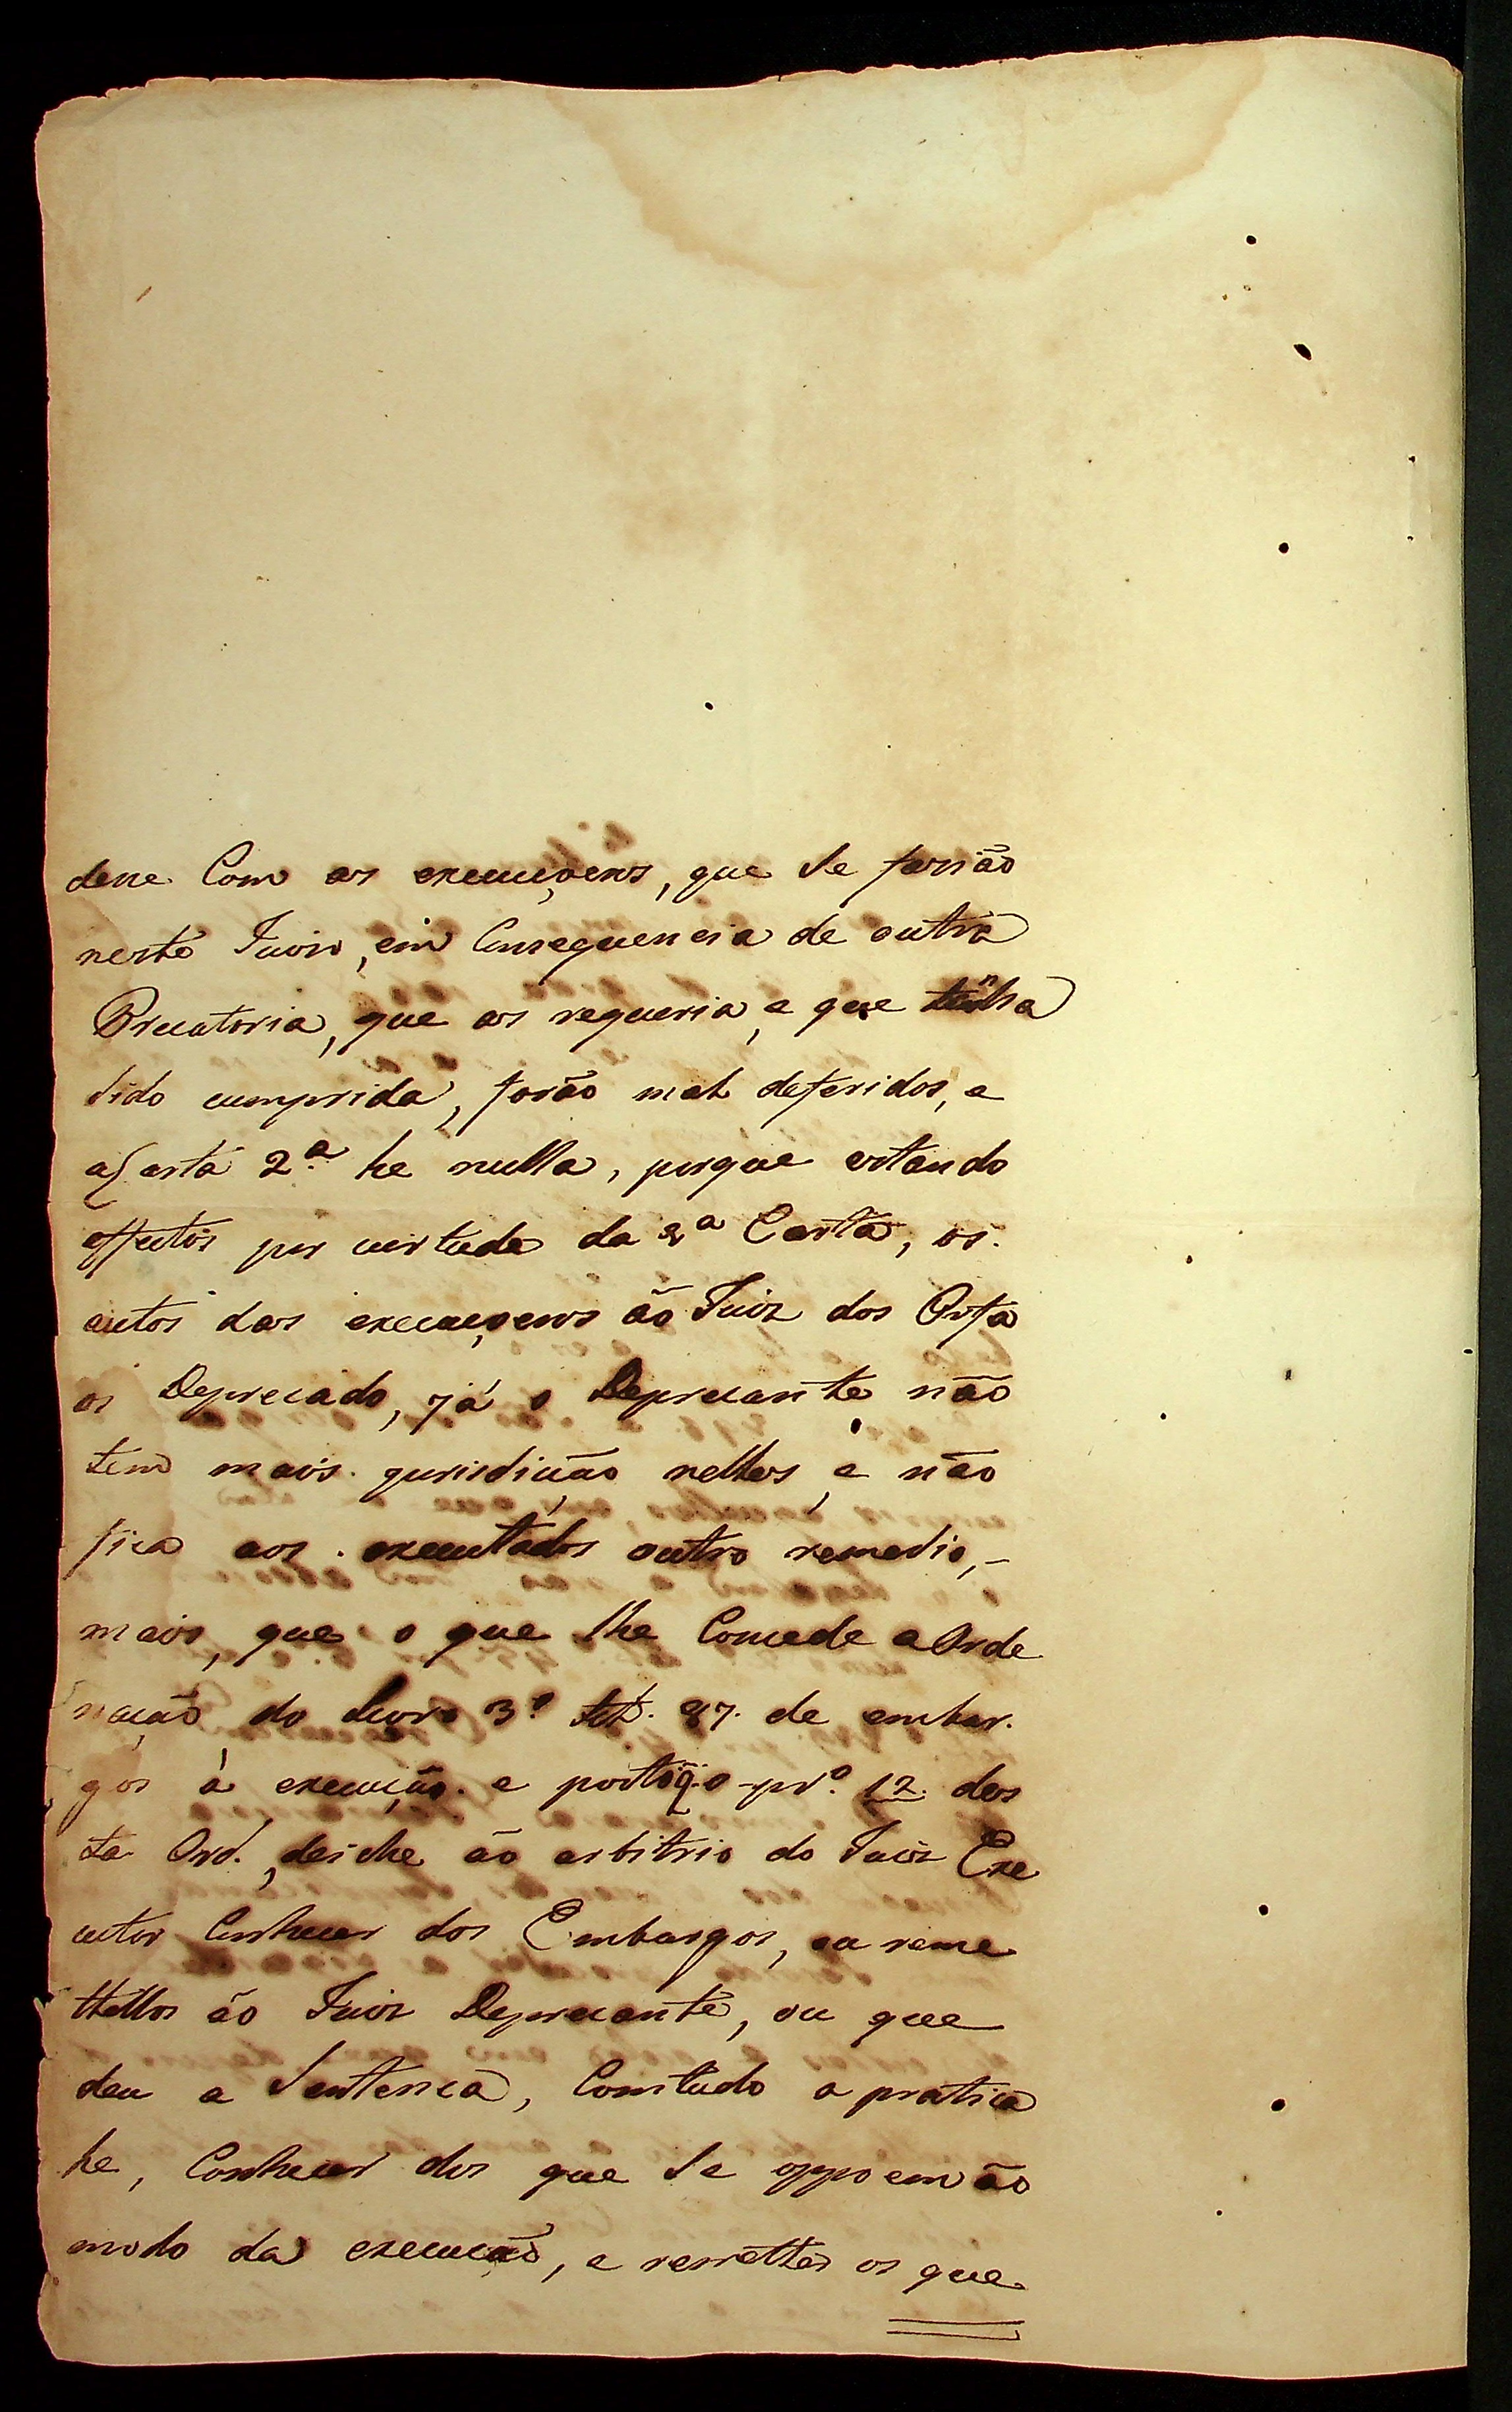 dene Com as execuçoens, que se fasião
neste Juiso, em Consequencia de outra
Precatoria, que as requeria, e que tinha
sido cumprida, forão mal deferidos, e
a Carta 2.ª he nulla, porque estando
affectos por virtude da 2ª Carta, os
autos das execuçoens ão Juiz dos Orfa
os Deprecado, já o Deprecante não
tem mais jurisdicção nelles, e não
fica aos executados outro remedio, -
mais, que o que lhe Concede a Orde
nação do Livro 3.º tit. 87. de embar.
gos á execução. e posto q̃. o pr.º 12. des
ta Ord., deiche ão arbitrio do Juiz Exe
cutor Conhecer dos Embargos, ou reme
ttellos ão Juiz Deprecante, ou que
deu a Sentença, Comtudo a pratica
he, Conhecer dos que se oppoem ão
modo da execução, e remetter os que